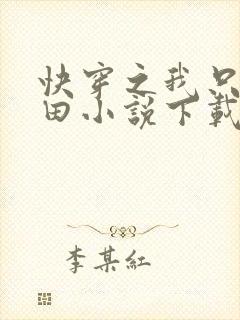 快穿之我只
田小説下載
李某紅